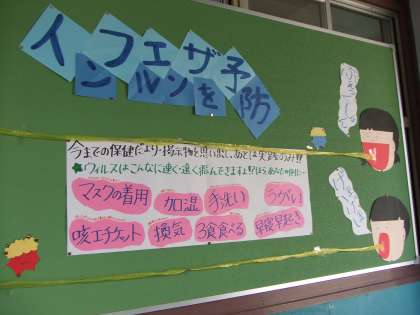 インフルエンザを予防
今までの保健だより・掲示物を思い出し、あとは実践のみ!!
ウィルスはこんなに速く・遠く飛んできますよ
マスクの着用 加湿 手洗い うがい
咳エチケット 換気 3食食べる 早寝早起き